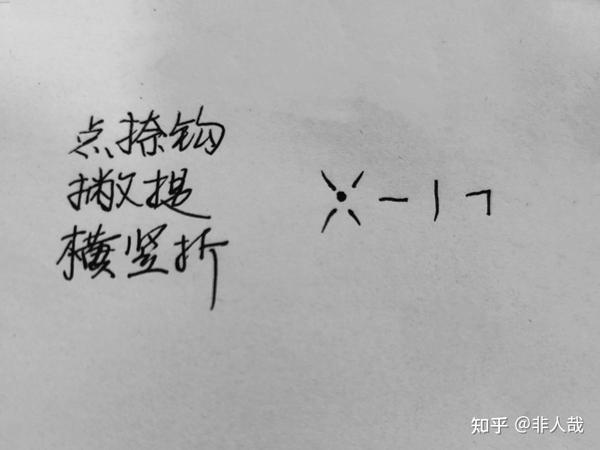 点捺钩
撇提
横竖折
知乎 @非人哉